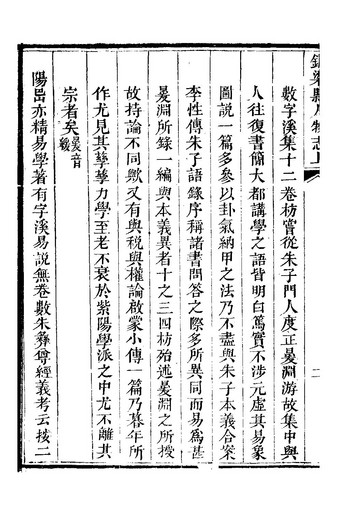 數字溪集十二卷枋嘗從朱子門人度正㬊淵游故集中與
人往復書簡大都講學之語皆明白篤實不涉元虛其易象
圖說一篇多參以卦氣納甲之法乃不盡與朱子本義合案
李性傳朱子語錄序稱諸書問答之際多所異同而易爲甚
㬊淵所錄一編與本義異者十之三四枋殆述㬊淵之所授
故持論不同歟又有與稅與權論啟蒙小傳一篇乃暮年所
作尤見其孳孳力學至老不衰於紫陽學派之中尤不離其
宗者矣㬊音
陽嵒亦精易學著有字溪易說無卷數朱彝尊經義考云按二